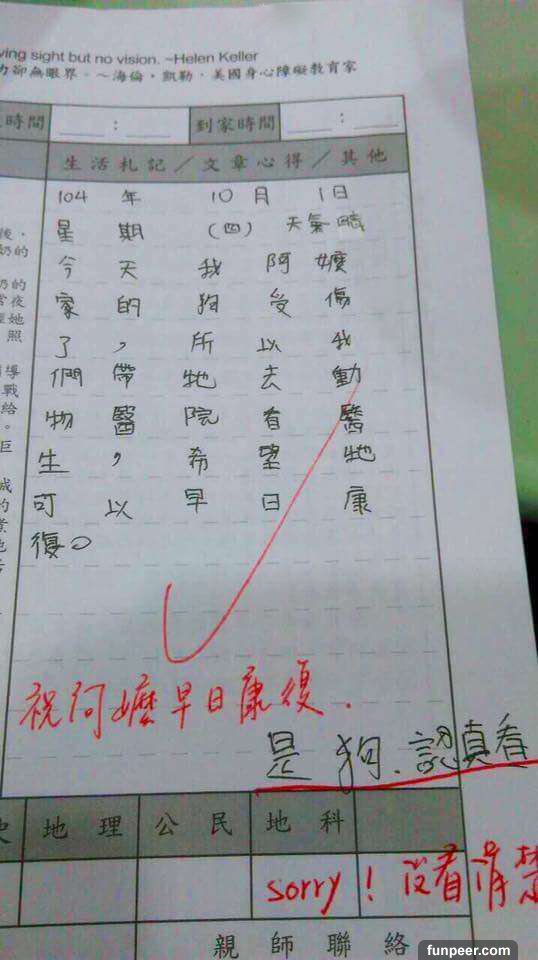 ving sight but no vision. ~Helen Keller
力卻無眼界。～海倫．凱勒．美國身心障礙教育家
時間 : 到家時間 :
生活札記／文章心得／其他
104 年 10 月 1日
星期(四) 天氣晴
今天我阿嬤
家的狗受傷
了，所以我
們帶牠去動
物醫院看醫
生，希望牠
可以早日康
復。
後，
奶的
奶的
常夜
她
照
導
戰
給
。
巨
成
的
業
也
祝阿嬤早日康復.
是狗.認真看
地理 公民 地科
sorry！沒看清楚
親師聯絡
funpeer.com